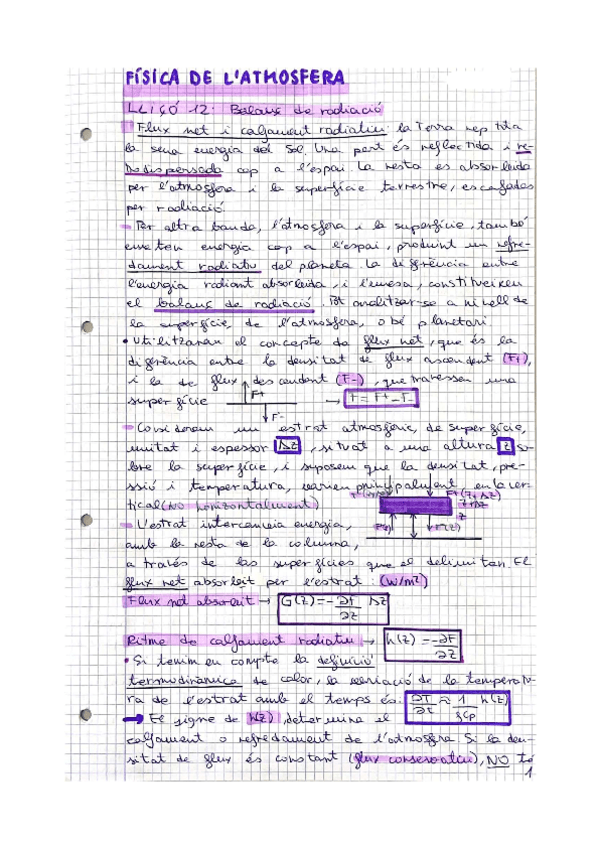 FÍSICA DE L'ATMOSFERA
LLIÇÓ 12: Balanç de radiació
Flux net i calfament radiatiu: la Terra rep tota
la seua energia del Sol. Una part és reflectida i re-
trodispersada cap a l'espai. La resta és absorbida
per l'atmosfera i la superfície terrestre, escalfades
per radiació.
- Per altra banda, l'atmosfera i la superfície, també
emeten energia cap a l'espai, produint un refre-
dament radiatiu del planeta. La diferència entre
l'energia radiant absorbida, i l'emesa, constitueixen
el balanç de radiació. Pot analitzar-se a nivell de
la superfície, de l'atmosfera, o bé planetari.
• Utilitzaran el concepte de flux net, que és la
diferència entre la densitat de flux ascendent (F+),
i la de flux descendent (F-), que travessen una
superfície F+ F- → F = F+ - F-
- Considerem un estrat atmosfèric, de superfície,
unitat i espessor Δz, situat a una altura z so-
bre la superfície, i suposem que la densitat, pre-
ssió i temperatura, varien principalment, en la ver-
tical (no horizontalment) F+(z+Δz)
z+Δz
z
- L'estrat intercanvia energia, F-(z)
amb la resta de la columna,
a través de las superfícies que el delimitan. El
flux net absorbit per l'estrat: (W/m²)
Flux net absorbit → G(z) = -∂F/∂z Δz
Ritme de calfament radiatiu → h(z) = -∂F/∂z
• Si tenim en compte la definició
termodinàmica de calor, la variació de la temperatu-
ra de l'estrat amb el temps és: ∂T/∂t ≈ 1/ρcp h(z)
→ El signe de h(z), determina el
calfament o refredament de l'atmosfera. Si la den-
sitat de flux és constant (flux conservatiu), NO té
1